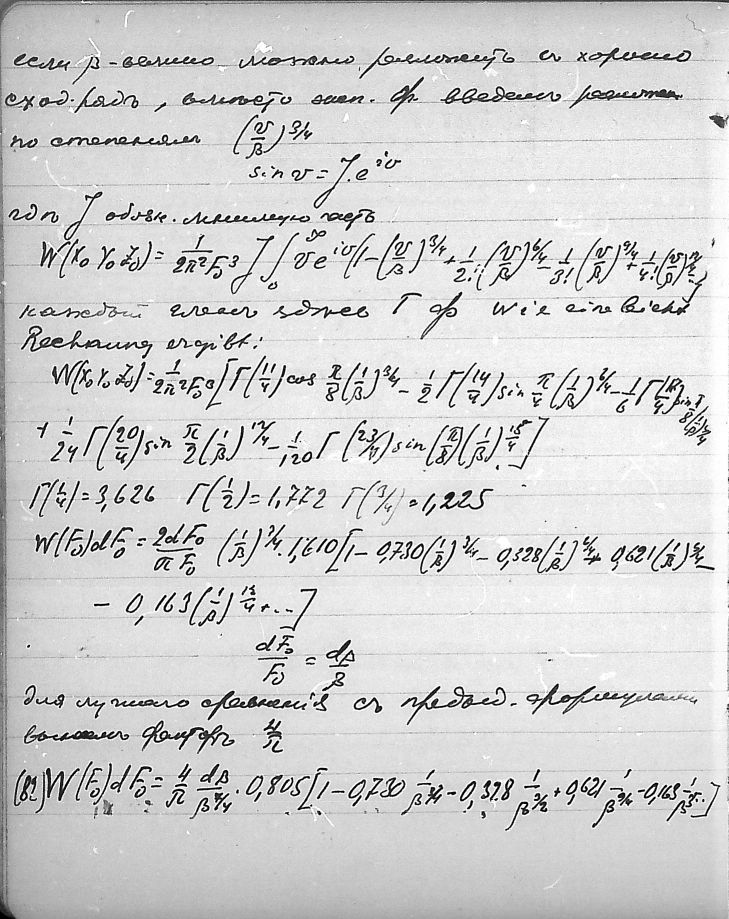 если β-велико можно разложить въ хорошо
сход. рядъ, вмѣсто эксп. ф. введемъ разложен
по степенямъ (v/β)^3/4
sin v = J. e^iv
гдѣ J обозн. мнимую часть
W(X₀ Y₀ Z₀) = 1/2π²F₀³ J ∫₀^∞ v e^iv (1-(v/β)^3/4 + 1/2! (v/β)^6/4 - 1/3! (v/β)^9/4 + 1/4! (v/β)^12/4 - )
каждый членъ здѣсь Γ ф Wie eine leichte
Rechnung ergibt:
W(X₀ Y₀ Z₀) = 1/2π²F₀³ [Γ(11/4) cos π/8 (1/β)^3/4 - 1/2 Γ(14/4) sin π/4 (1/β)^6/4 - 1/6 Γ(17/4) sin π/8 (1/β)^9/4
+ 1/24 Γ(20/4) sin π/2 (1/β)^12/4 - 1/120 Γ(23/4) sin (π/8) (1/β)^15/4]
Γ(1/4) = 3,626 Γ(1/2) = 1,772 Γ(3/4) = 1,225
W(F₀)dF₀ = 2dF₀/πF₀ (1/β)^3/4 . 1,610 [1 - 0,730 (1/β)^3/4 - 0,328 (1/β)^6/4 + 0,621 (1/β)^9/4 -
- 0,163 (1/β)^12/4 + ..]
dF₀/F₀ = dβ/β
для лучшаго сравненія съ предыд. формулами
вынесемъ факторъ 4/π
(82) W(F₀)dF₀ = 4/π dβ/β^7/4 . 0,805 [1 - 0,730 1/β^3/4 - 0,328 1/β^3/2 + 0,621 1/β^9/4 - 0,163 1/β^3 ..]